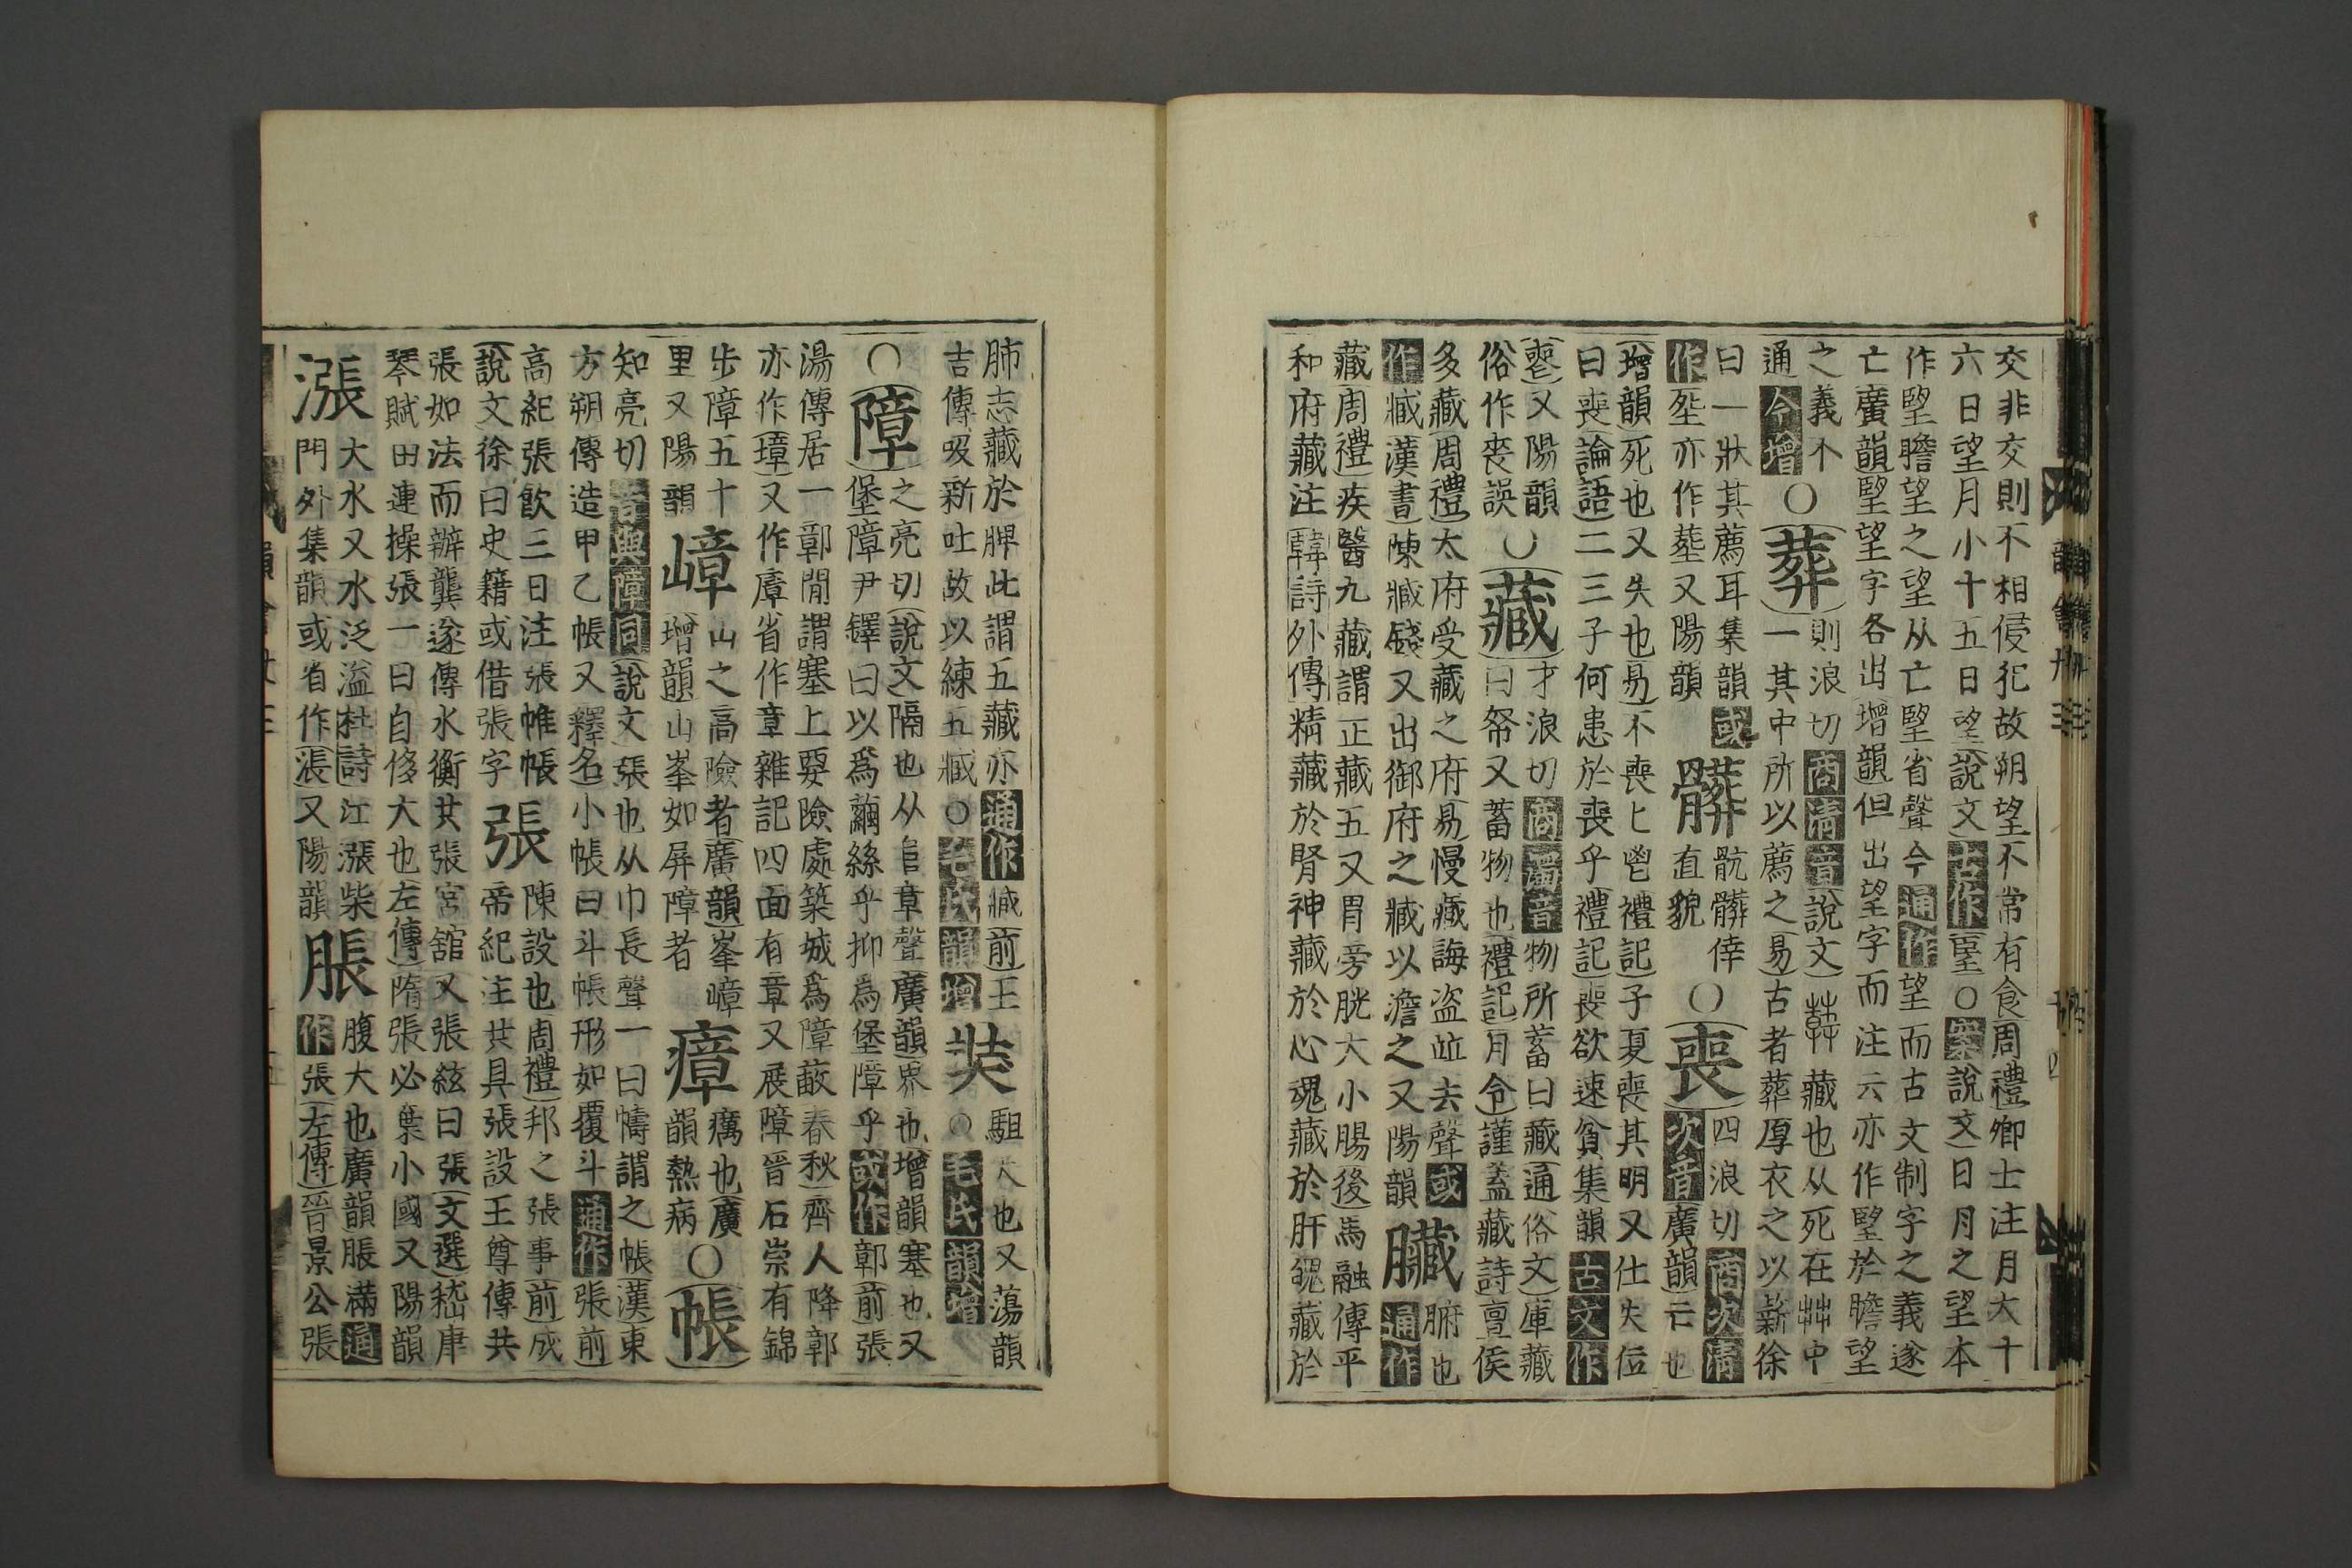 交非交則不相侵犯故朔望不常有食周禮卿士注月大十
六日望月小十五日望說文古作𦣠○案說文日月之望本
作朢瞻望之望从亡朢省聲今通作望而古文制字之義遂
亡廣韻朢望字各出增韻但出望字而注云亦作朢於瞻望
之義不
通今增○葬則浪切商清音說文葬藏也从死在茻中
一其中所以薦之易古者葬厚衣之以薪徐
曰一狀其薦耳集韻或
作㘸亦作塟又陽韻
髒骯髒倖
直貌
○喪四浪切商次清
次音廣韻亡也
增韻死也又失也易不喪匕鬯禮記子夏喪其明又仕失位
曰喪論語二三子何患於喪乎禮記喪欲速貧集韻古文作
𠷔又陽韻
俗作䘮誤
○藏才浪切商濁音物所蓄曰藏通俗文庫藏
曰帑又蓄物也禮記月令謹蓋藏詩亶侯
多藏周禮太府受藏之府易慢藏誨盜竝去聲或
作臧漢書陳臧錢又出御府之臧以澹之又陽韻
臟腑也
通作
藏周禮疾醫九藏謂正藏五又胃旁胱大小腸後馬融傳平
和府藏注韓詩外傳精藏於腎神藏於心魂藏於肝魄藏於
肺志藏於脾此謂五藏亦通作臧前王
吉傳吸新吐故以練五臧○毛氏韻增
奘駔大也又蕩韻
○毛氏韻增
○障之亮切說文隔也从𨸏章聲廣韻界也增韻塞也又
堡障尹鐸曰以爲繭絲乎抑爲堡障乎或作鄣前張
湯傳居一鄣閒謂塞上要險處築城爲障蔽春秋齊人降鄣
亦作墇又作㢓省作章雜記四面有章又展障晉石崇有錦
步障五十
里又陽韻
嶂山之高險者廣韻峯嶂
增韻山峯如屏障者
瘴癘也廣
韻熱病
○帳
知亮切音與障同說文張也从巾長聲一曰幬謂之帳漢東
方朔傳造甲乙帳又釋名小帳曰斗帳形如覆斗通作張前
高紀張飮三日注張帷帳
說文徐曰史籍或借張字
張陳設也周禮邦之張事前成
帝紀注共具張設王尊傳共
張如法而辦龔遂傳水衡共張宮舘又張絃曰張文選嵇康
琴賦田連操張一曰自侈大也左傳隋張必棄小國又陽韻
漲大水又水泛溢杜詩江漲柴
門外集韻或省作張又陽韻
脹腹大也廣韻脹滿通
作張左傳晉景公張